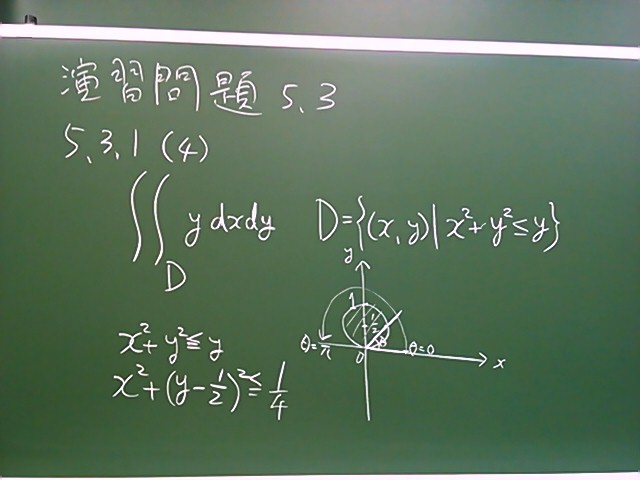 演習問題 5.3
5.3.1 (4)
∬_D y dxdy D={(x,y)|x²+y²≤y}
y
1
1/2
θ=π 0 θ θ=0 x
x²+y²≦y
x²+(y-1/2)²≦1/4